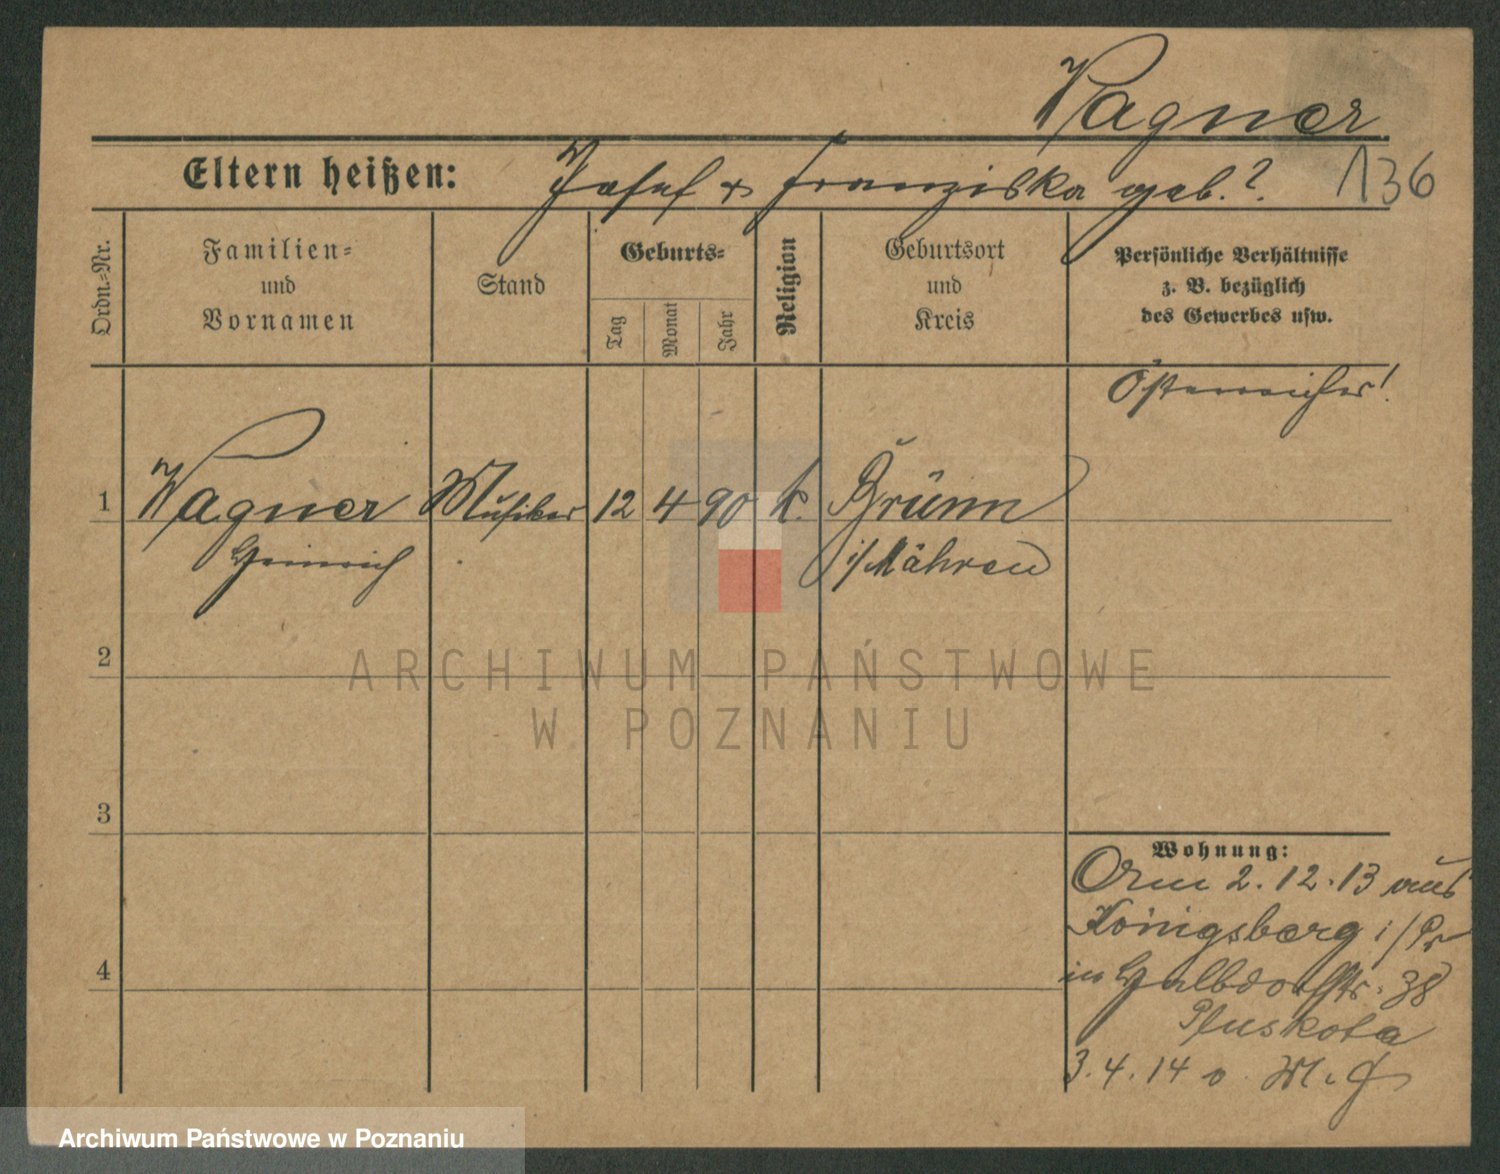 Wagner.
Eltern heißen: Josef & Franziska geb. ?.
136
Ordn.-Nr.
Familien-
und
Vornamen
Stand
Geburts-
Tag
Monat
Jahr
Religion
Geburtsort
und
Kreis
Persönliche Verhältnisse
z. B. bezüglich
des Gewerbes usw.
Österreicher!
1 Wagner Musiker 12 4 90 k. Brünn
Heinrich i/Mähren
2
ARCHIWUM PAŃSTWOWE
W POZNANIU
3
Wohnung:
2.12.13 aus
Königsberg i/Pr
in Halbdorffstr. 38
Pluskota
4
3.4.14 o. M. J
Archiwum Państwowe w Poznaniu